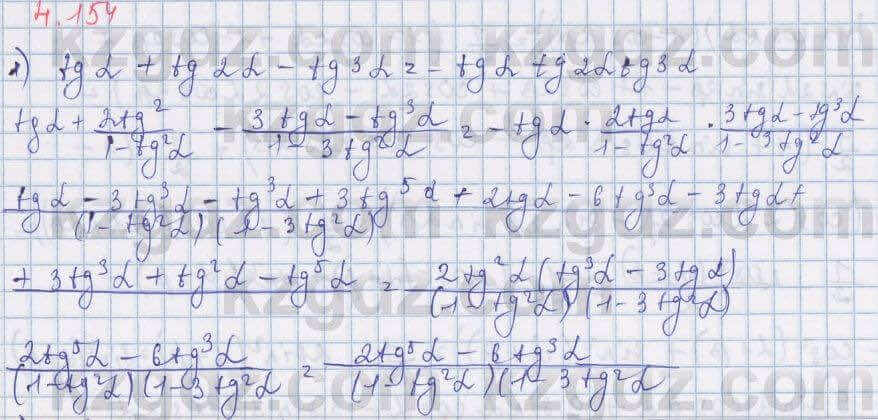 4.154
1) tgα + tg2α - tg3α = - tgα tg2α tg3α
tgα + 2tg²/1-tg²α - 3tgα - tg³α/1-3tg²α = - tgα · 2tgα/1-tg²α · 3tgα - tg³α/1-3tg²α
tgα - 3tg³α - tg³α + 3tg⁵α + 2tgα - 6tg³α - 3tgα +
(1-tg²α)(1-3tg²α)
+ 3tg³α + tg²α - tg⁵α = 2tg²α(tg³α - 3tgα)/(1-tg²α)(1-3tg²α)
2tg⁵α - 6tg³α/(1-tg²α)(1-3tg²α = 2tg⁵α - 6tg³α/(1-tg²α)(1-3tg²α
kzgdz.com